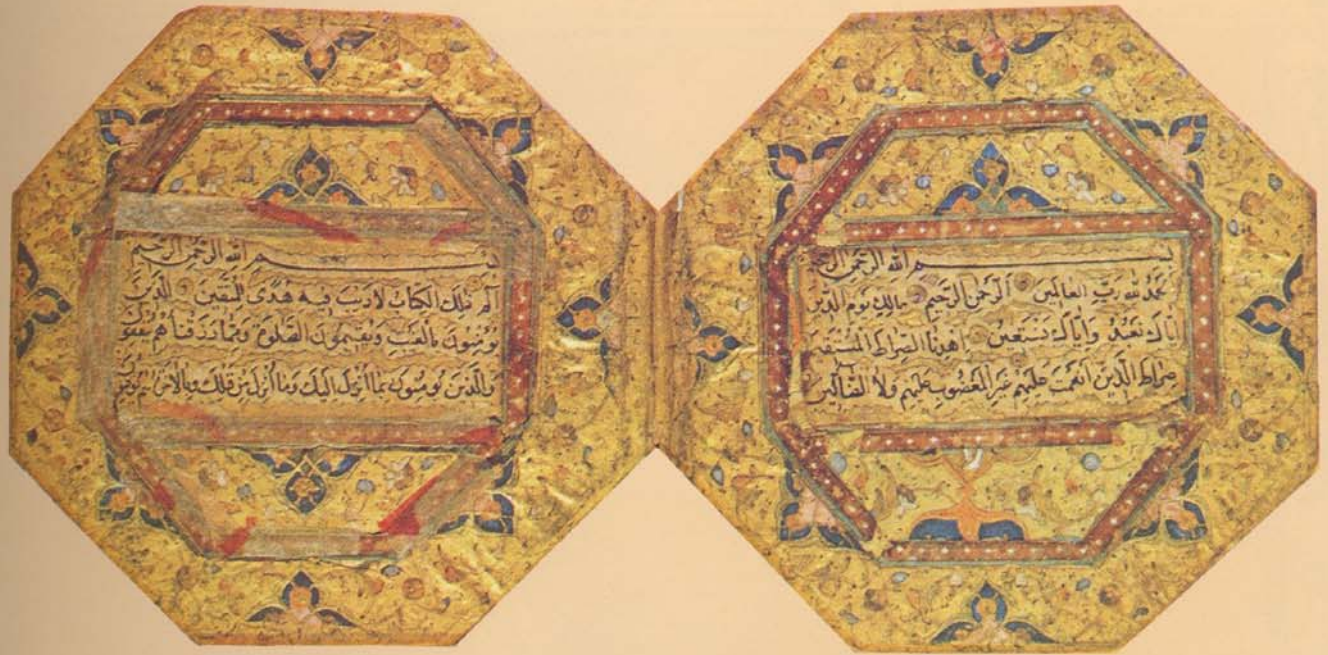 بسم الله الرَّحْمَنِ الرَّحِيمِ
الْحَمْدُ لله رَبِّ العَالَمِينَ الرَّحْمَنِ الرَّحِيمِ مَالِكِ يَوْمِ الدِّينِ
إِيَّاكَ نَعْبُدُ وَإِيَّاكَ نَسْتَعِينُ اِهْدِنَا الصِّرَاطَ الْمُسْتَقِيمَ
صِرَاطَ الَّذِينَ اَنْعَمْتَ عَلَيْهِمْ غَيْرِ الْمَغْضُوبِ عَلَيْهِمْ وَلَا الضَّالِّينَ
بسم الله الرَّحْمَنِ الرَّحِيمِ
الم ذَلِكَ الْكِتَابُ لَا رَيْبَ فِيهِ هُدًى لِلْمُتَّقِينَ الَّذِينَ
يُؤْمِنُونَ بِالْغَيْبِ وَيُقِيمُونَ الصَّلٰوةَ وَمِمَّا رَزَقْنَاهُمْ يُنْفِقُونَ
وَالَّذِينَ يُؤْمِنُونَ بِمَا اُنْزِلَ اِلَيْكَ وَمَا اُنْزِلَ مِنْ قَبْلِكَ وَبِالْاٰخِرَةِ هُمْ يُوقِنُونَ